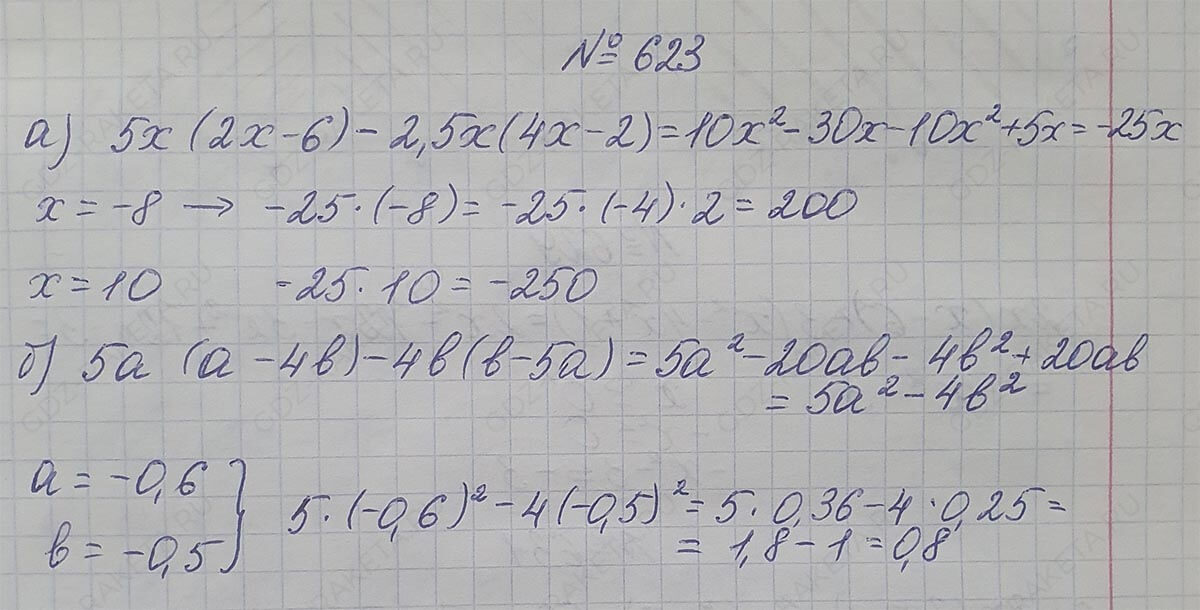 № 623
а) 5x (2x-6) - 2,5x(4x-2) = 10x² - 30x - 10x² + 5x = -25x
x = -8 → -25·(-8) = -25·(-4)·2 = 200
x = 10 -25·10 = -250
б) 5a (a - 4b) - 4b(b - 5a) = 5a² - 20ab - 4b² + 20ab
= 5a² - 4b²
a = -0,6
b = -0,5
5·(-0,6)² - 4(-0,5)² = 5·0,36 - 4·0,25 =
= 1,8 - 1 = 0,8